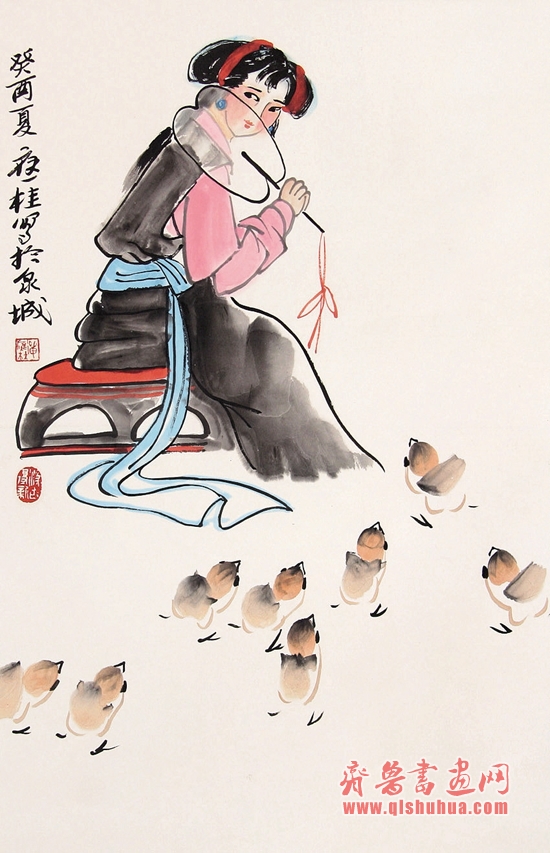 癸酉夏 应桂写於泉城
齐鲁書畫网
www.qlshuhua.com